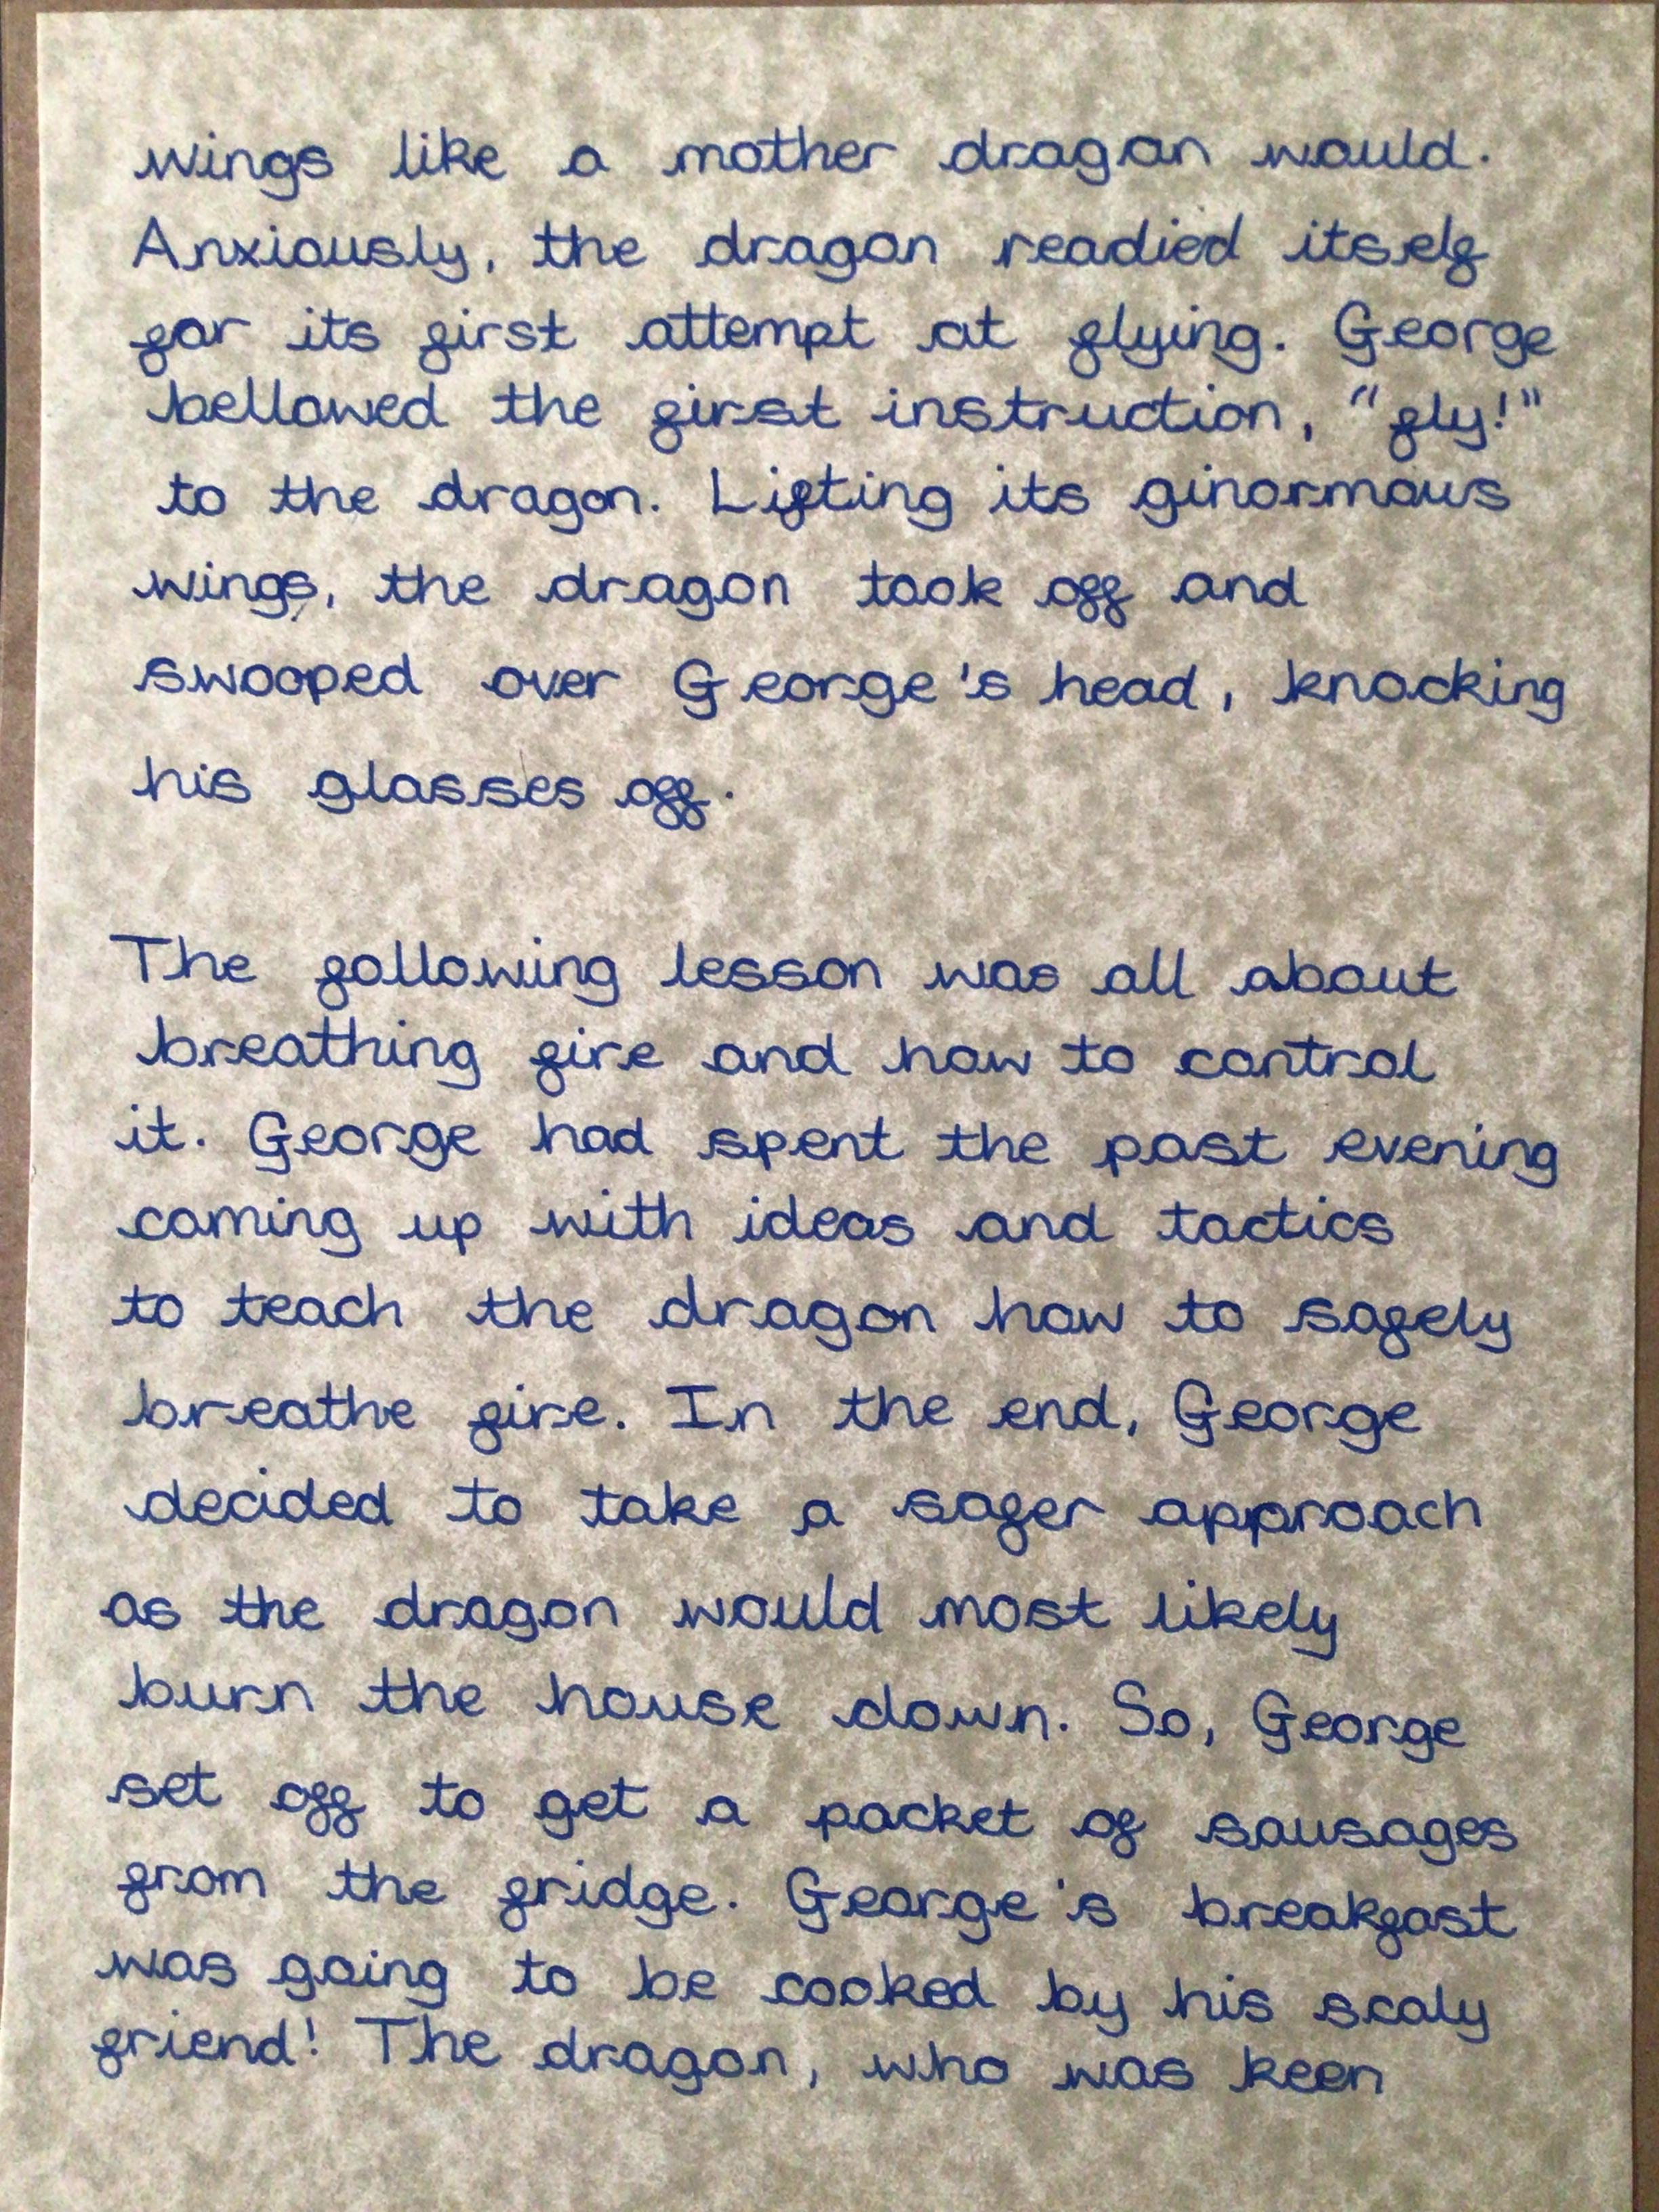 wings like a mother dragon would.
Anxiously, the dragon readied itself
for its first attempt at flying. George
bellowed the first instruction, "fly!"
to the dragon. Lifting its ginormous
wings, the dragon took off and
swooped over George's head, knocking
his glasses off.
The following lesson was all about
breathing fire and how to control
it. George had spent the past evening
coming up with ideas and tactics
to teach the dragon how to safely
breathe fire. In the end, George
decided to take a safer approach
as the dragon would most likely
burn the house down. So, George
set off to get a packet of sausages
from the fridge. George's breakfast
was going to be cooked by his scaly
friend! The dragon, who was keen